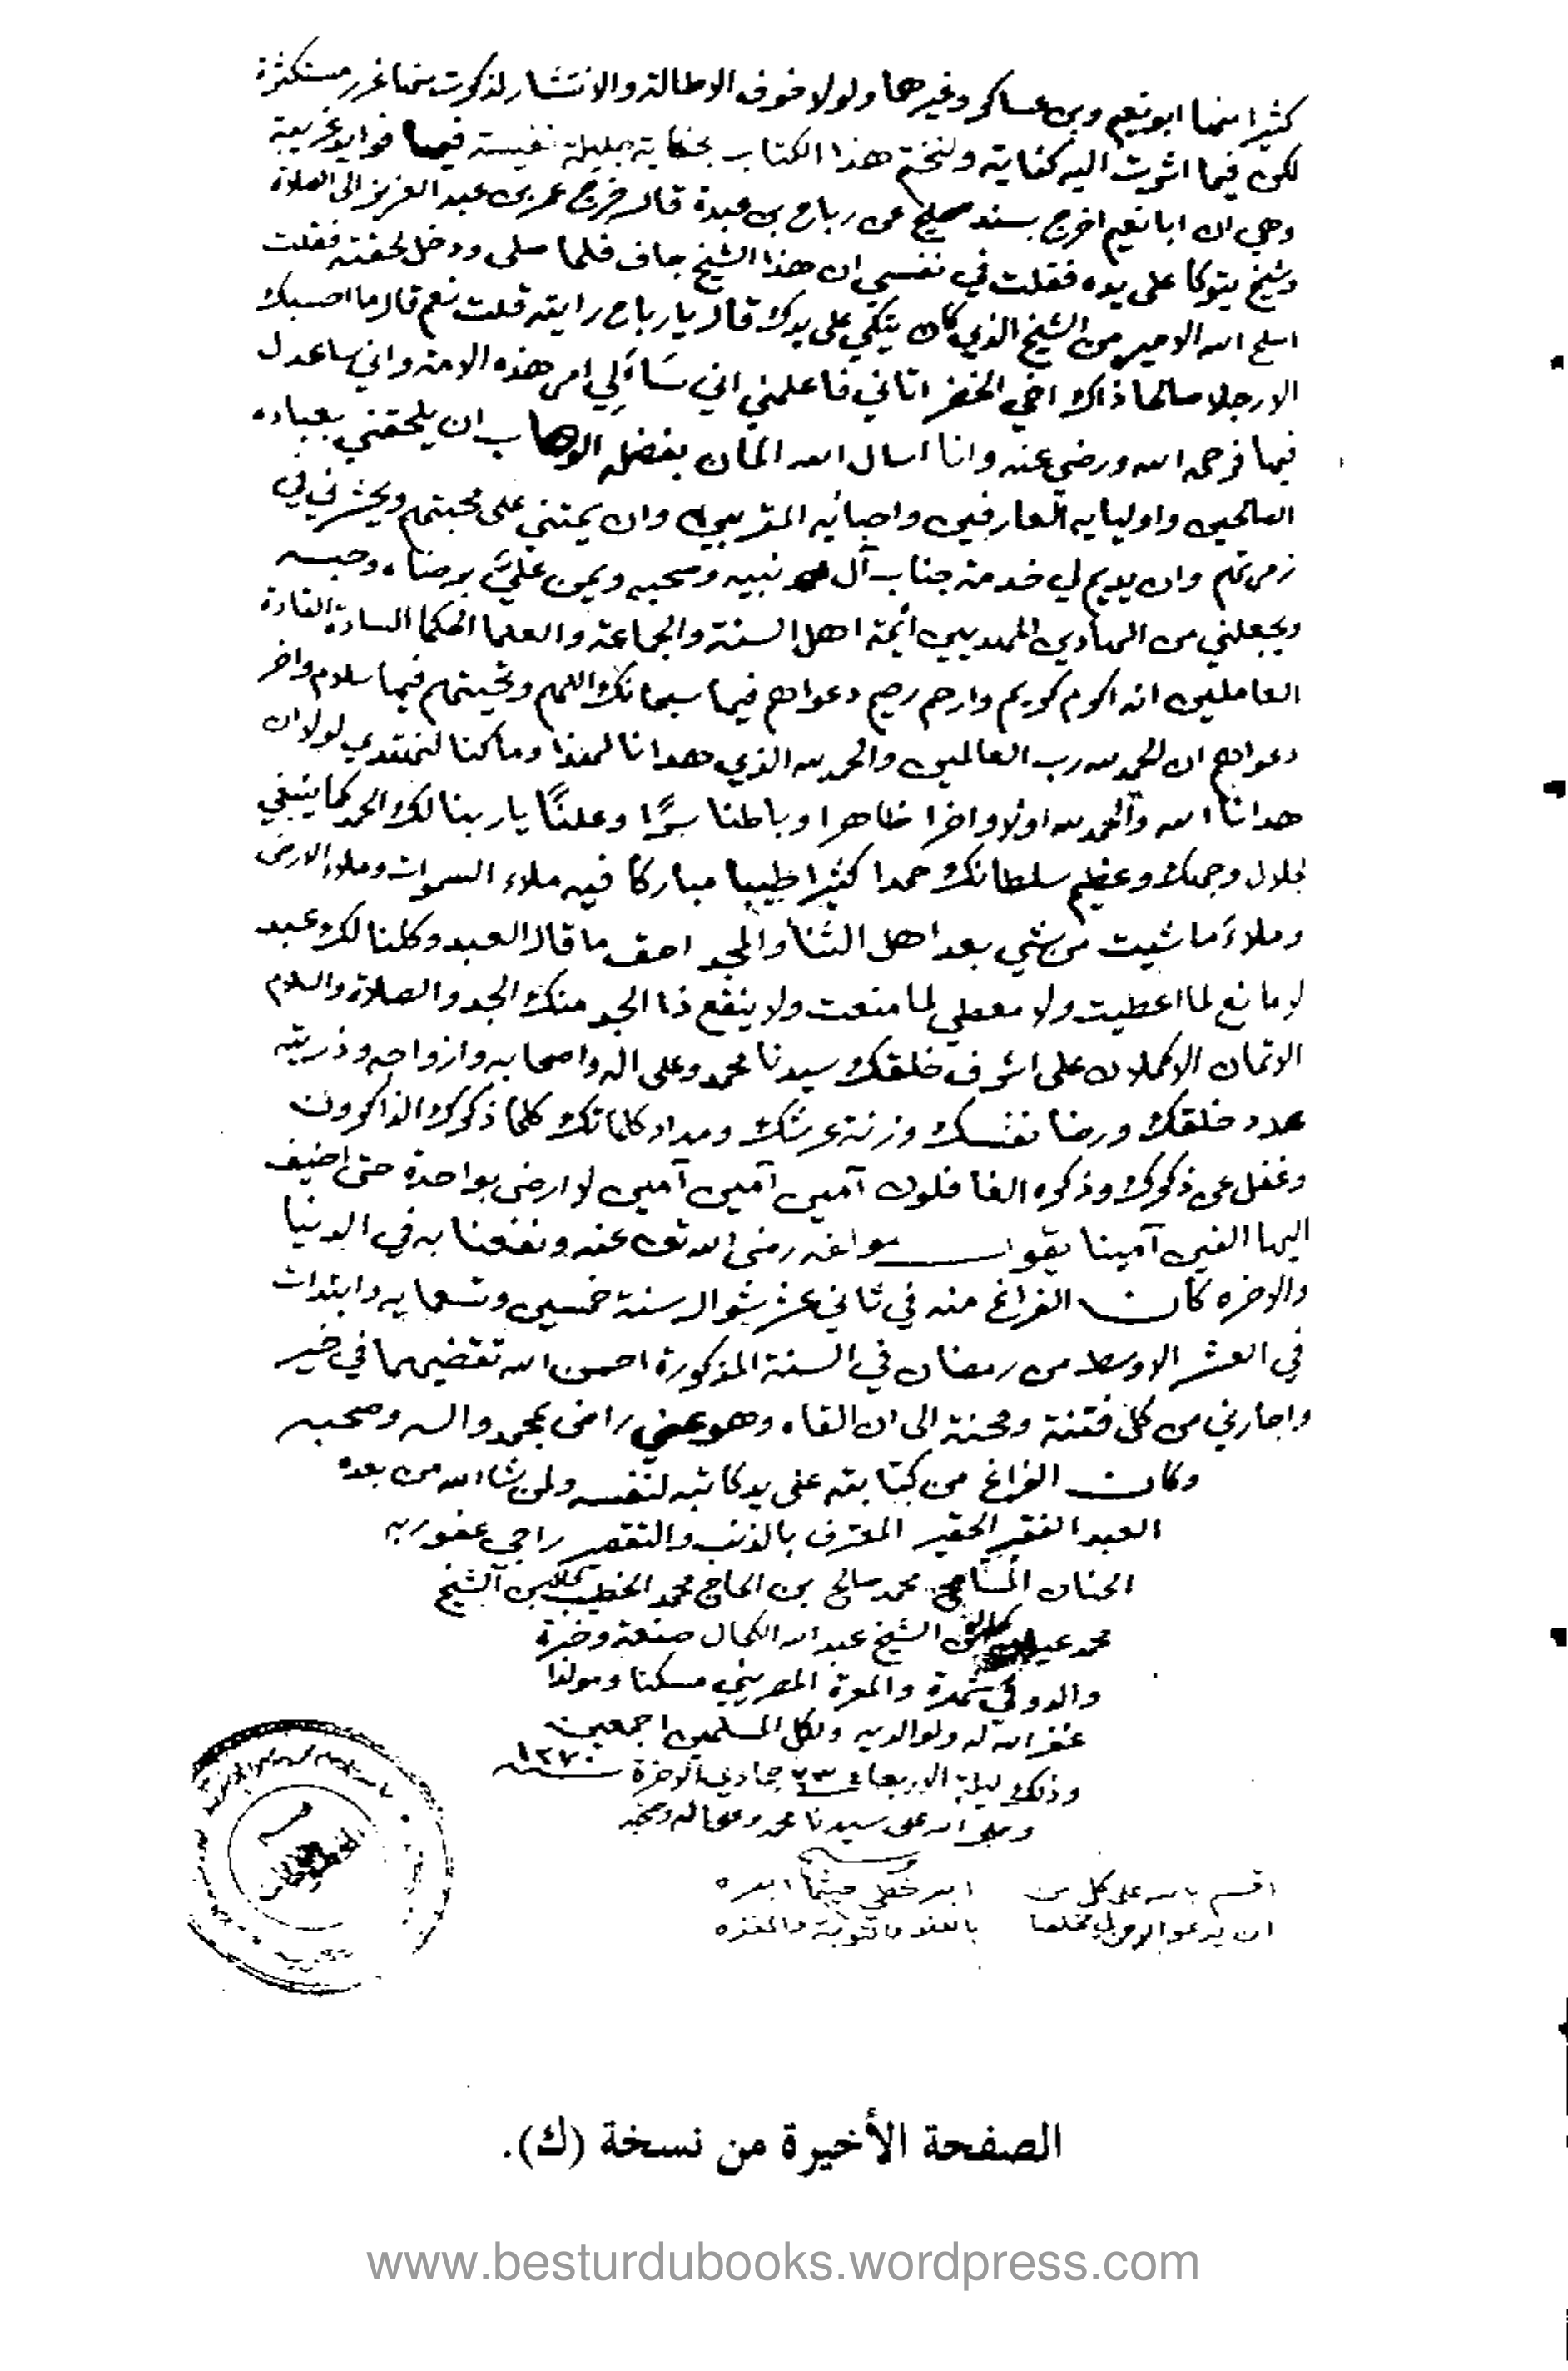 كثيرا منها ابو نعيم وبن عساكر وغيرهما ولولا خوف الاطالة والانتشار لذكرت منها غرر مستكثرة
لكن فيما اشرت اليه كفاية ولنختم هذا الكتاب بحكاية جليلة نفيسة فيها فوايد غريبة
وهي ان ابا نعيم اخرج بسند صحيح عن رباح بن عبدة قال خرج عمر بن عبد العزيز الى الصلاة
وشيخ يتوكا على يده فقلت في نفسي ان هذا الشيخ جاف فلما صلى ودخل لحقته فقلت
اصلح الله الامير من الشيخ الذي كان يتكي على يدك قال يا رباح رايته قلت نعم قال ما احسبك
الا رجلا صالحا ذاك اخي الخضر اتاني فاعلمني اني سَاَلِي امر هذه الامة واني ساعدل
فيها فرحمه الله ورضي عنه وانا اسال الله المان بفضله الوهاب ان يلحقني بعباده
الصالحين واوليايه العارفين واحبائه المقربين وان يمتني على محبتهم ويحشرني في
زمرتهم وان يديم لي خدمة جناب آل نبيه وصحبه ويمن عليَّ برضاه وحبه
ويجعلني من الهادين المهديين ائمة اهل السنة والجماعة والعلما الحكما السادة القادة
العاملين انه اكرم كريم وارحم رحيم دعواهم فيها سبحانك اللهم وتحيتهم فيها سلام واخر
دعواهم ان الحمد لله رب العالمين والحمد لله الذي هدانا لهذا وما كنا لنهتدي لولا ان
هدانا الله والحمد لله اولا واخرا ظاهرا وباطنا سرًّا وعلنًا يا ربنا لك الحمد كما ينبغي
لجلال وجهك وعظيم سلطانك حمدا كثيرا طيبا مباركا فيه ملاء السموات وملاء الارض
وملاءَ ما شيت من شي بعد اهل الثنا والمجد احق ما قال العبد وكلنا لك عبد
لا مانع لما اعطيت ولا معطي لما منعت ولا ينفع ذا الجد منك الجد والصلاة والسلام
الاتمان الاكملان على اشرف خلقك سيدنا محمد وعلى اله واصحابه وازواجه وذريته
عدد خلقك ورضا نفسك وزنة عرشك ومداد كلماتك كلما ذكرك الذاكرون
وغفل عن ذكرك وذكره الغافلون آمين آمين آمين لا ارضى بواحدة حتى اضيف
اليها الفين آمينا يقول مولفه رضى الله تعا عنه ونفعنا به في الدنيا
والاخره كان الفراغ منه في ثاني عشر شوال سنة خمسين وتسعمايه وابتدات
في العشر الاوسط من رمضان في السنة المذكورة احسن الله تقضيهما في خير
واجارني من كل فتنة ومحنة الى ان القاه وهو عني راض بمحمد واله وصحبه
وكان الفراغ من كتابته على يد كاتبه لنفسه ولمن شا الله من بعده
العبد الفقير الحقير المعترف بالذنب والتقصير راجي عفو ربه
الحنان محمد صالح بن الحاج محمد الخطيب بن الشيخ
محمد الشيخ عبد الله الكحال صنعة وخبرة
والدوكي شهرة والمعرة المصريني مسكنا ومولدا
غفر الله له ولوالديه ولكل المسلمين اجمعين
وذلك ليلة الاربعاء ٢٣ جمادي الاخرة سنة ١٢٧٠
وصلى الله على سيدنا محمد وعلى اله وصحبه
اقسم بالله على كل من ابصر خطي حيثما ابصره
ان يدعو الرحمن لي مخلصا بالعفو والتوبة والمغفره
الصفحة الأخيرة من نسخة (ك).
www.besturdubooks.wordpress.com